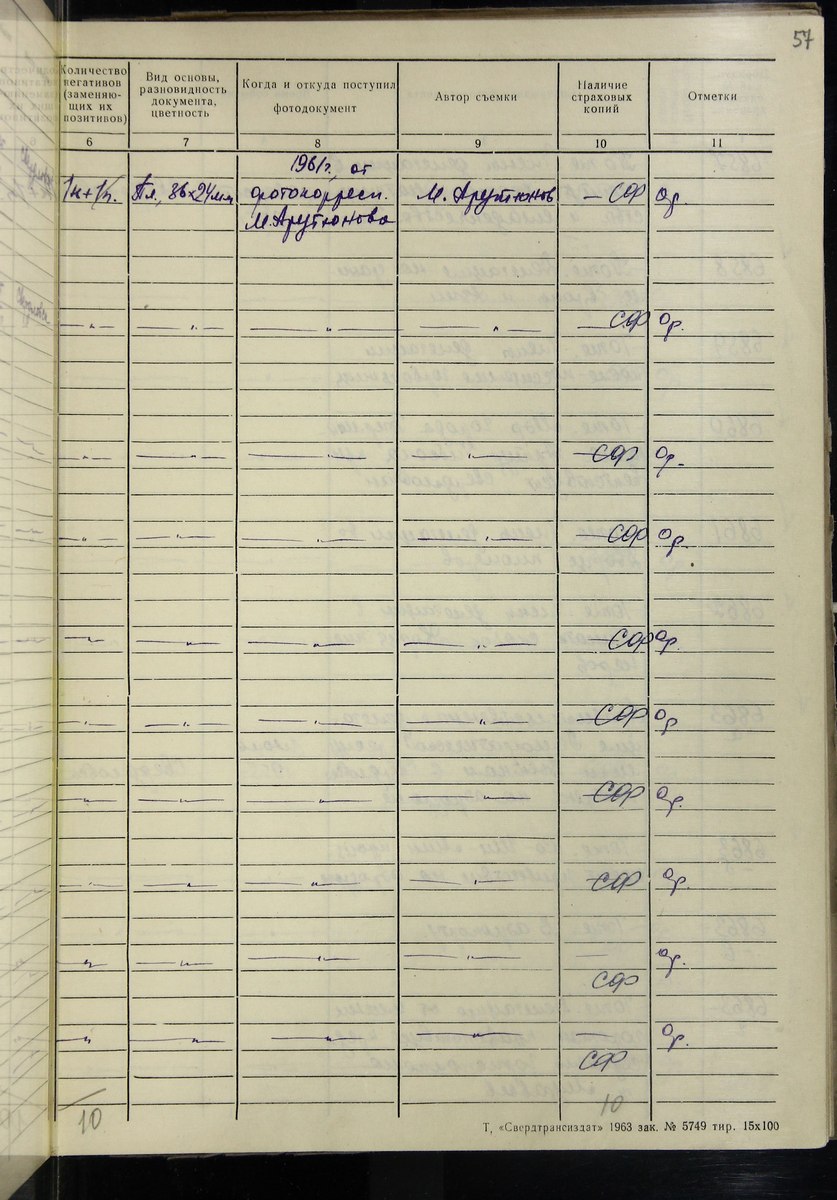 57
Количество негативов (заменяю- щих их позитивов) Вид основы, разновидность документа, цветность Когда и откуда поступил фотодокумент Автор съемки Наличие страховых копий Отметки
6 7 8 9 10 11
1961г., от
1н+1п. Пл., 36х24мм фотокорресп. М. Арутюнов — СФ Ор.
М. Арутюнова
—„— —„— —„— —„— — СФ Ор.
—„— —„— —„— —„— — СФ Ор.
—„— —„— —„— —„— — СФ Ор.
—„— —„— —„— —„— — СФ Ор.
—„— —„— —„— —„— — СФ Ор
—„— —„— —„— —„— — СФ Ор.
—„— —„— —„— —„— — СФ Ор.
—„— —„— —„— —„— — Ор.
СФ
—„— —„— —„— —„— — Ор.
СФ
10 10
Т, «Свердтрансиздат» 1963 зак. № 5749 тир. 15х100